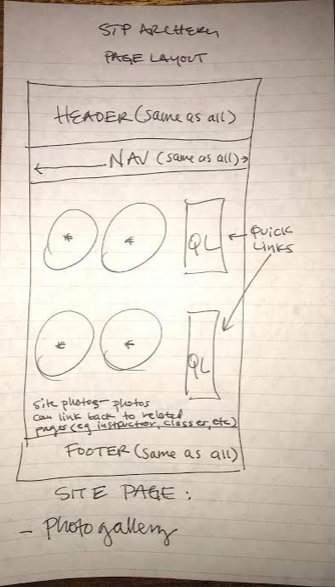 STP ARCHERY
PAGE LAYOUT
HEADER (same as all)
NAV (same as all)
QL
QUICK
LINKS
QL
site photos - photos
can link back to related
pages (eg instruction, classes, etc)
FOOTER (same as all)
SITE PAGE:
- Photo gallery